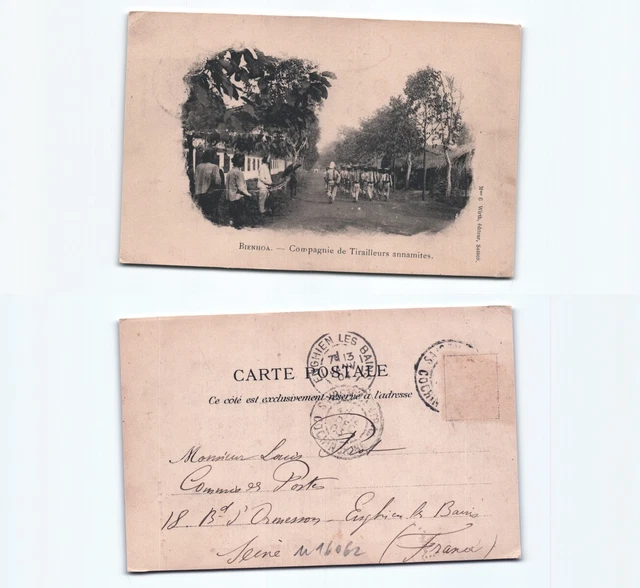 BIENHOA. — Compagnie de Tirailleurs annamites.
ENGHIEN LES BAINS
CARTE POSTALE
Ce côté est exclusivement réservé à l'adresse
Monsieur Louis
Commis des Postes
18. Bd d'Ormesson - Enghien les Bains
Seine (France)
N 16062